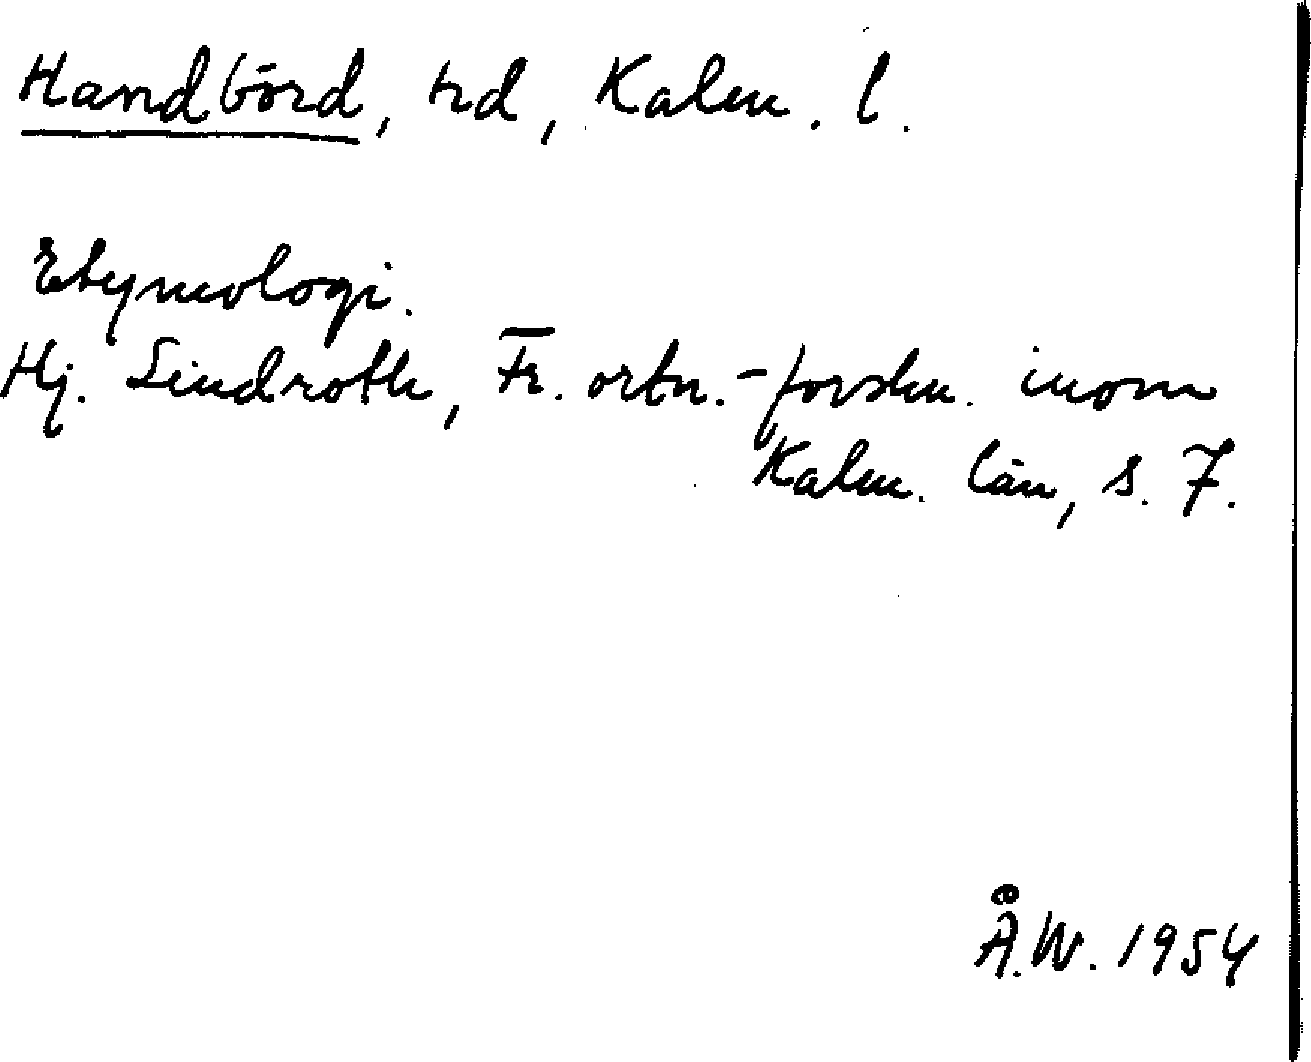 Handbörd, hd, Kalm. l.
Etymologi.
Hj. Lindroth, Fr. ortn.-forskn. inom
Kalm. län, s. 7.
Å.W. 1954